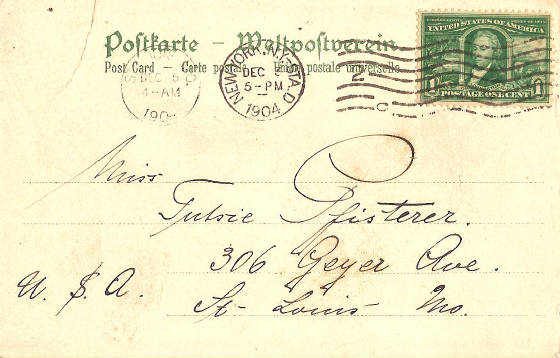 Postkarte – Weltpostverein
Post Card – Carte postale – Union postale universelle
UNITED STATES OF AMERICA
POSTAGE ONE CENT
NEW YORK, N.Y. STA. D
DEC
5-PM
1904
DEC 5
4-AM
190
Miss
Tutsie Pfisterer.
306 Geyer Ave.
U. S. A. St- Louis Mo.